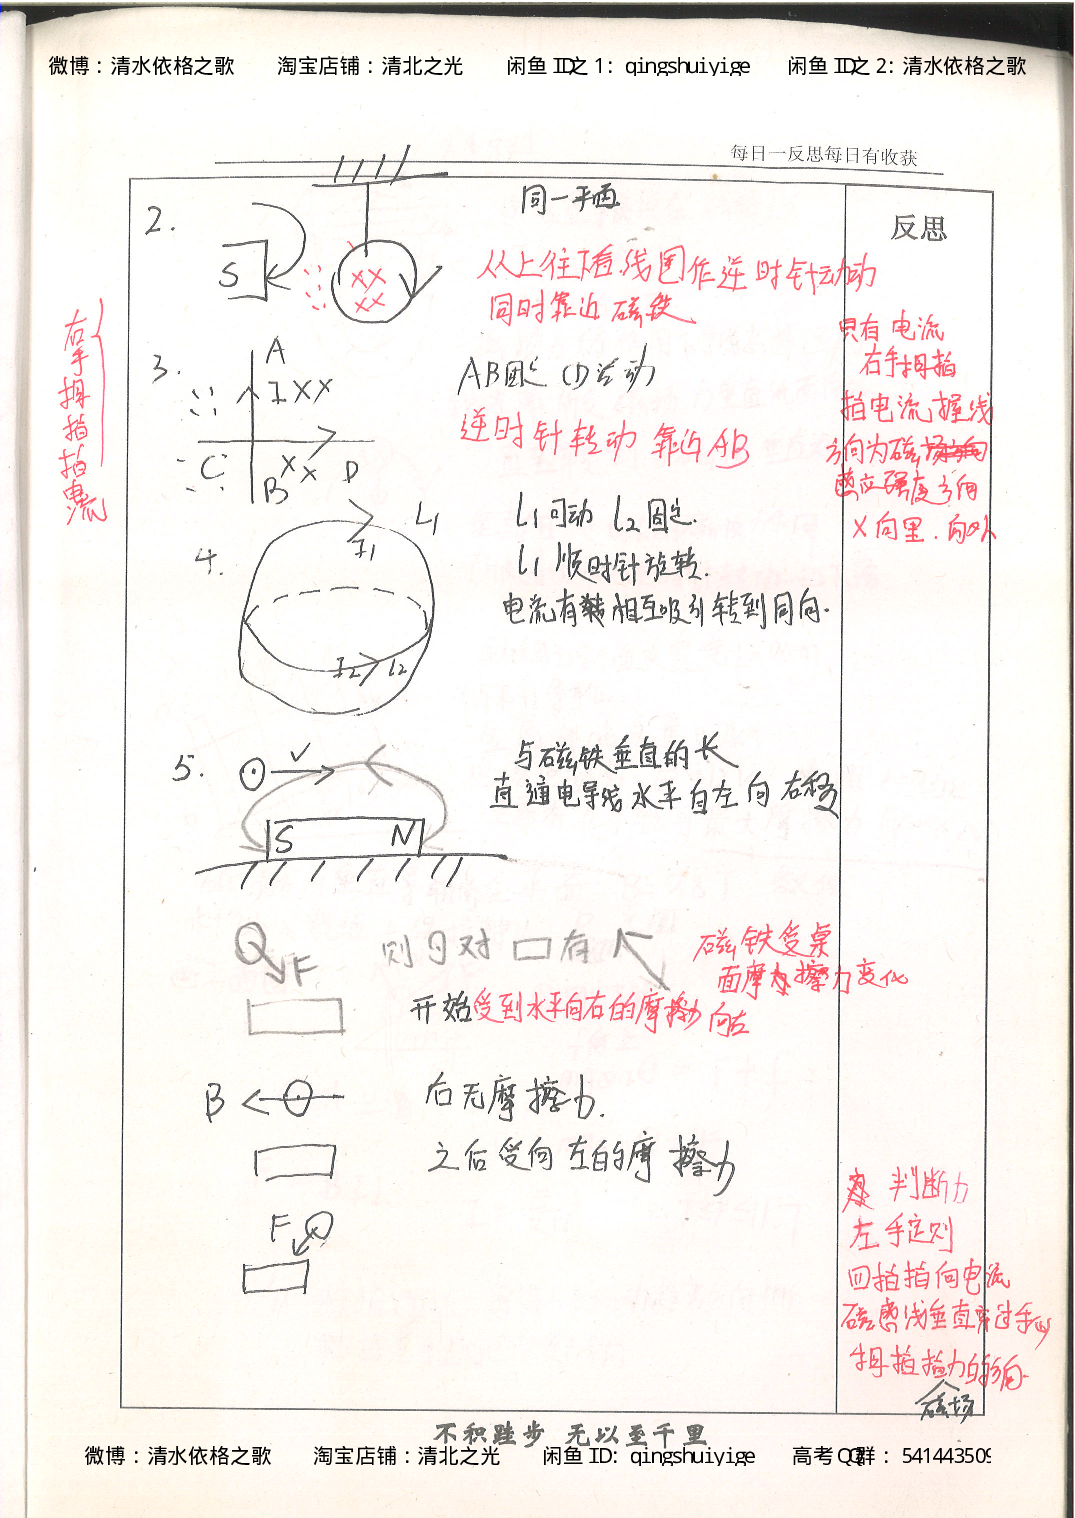 微博：清水依格之歌 淘宝店铺：清北之光 闲鱼ID之1：qingshuiyige 闲鱼ID之2：清水依格之歌
每日一反思每日有收获
反思
2.
同一平面
S
从上往下看,线圈作逆时针动动
同时靠近磁铁
右手拇指指电流
只有电流
右手拇指
指电流,握线
方向为磁
感应强度方向
X向里.向外
3.
A
I XX
C
XX
B
D
AB固定 CD运动
逆时针转动 靠近AB
4.
L1
I1
I2 L2
L1可动 L2固定.
L1顺时针旋转.
电流有转相互吸引转到同向.
5.
V
S N
与磁铁垂直的长
直通电导线水平自左向右移
F
则对 有
磁铁受桌
面摩擦力变化
开始受到水平向右的摩擦力 向左
B
后无摩擦力.
之后受向左的摩擦力
F
判断力
左手定则
四指指向电流
磁感线垂直穿过手心
拇指指力的方向.
磁场
不积跬步 无以至千里
微博：清水依格之歌 淘宝店铺：清北之光 闲鱼ID：qingshuiyige 高考QQ群：541443509